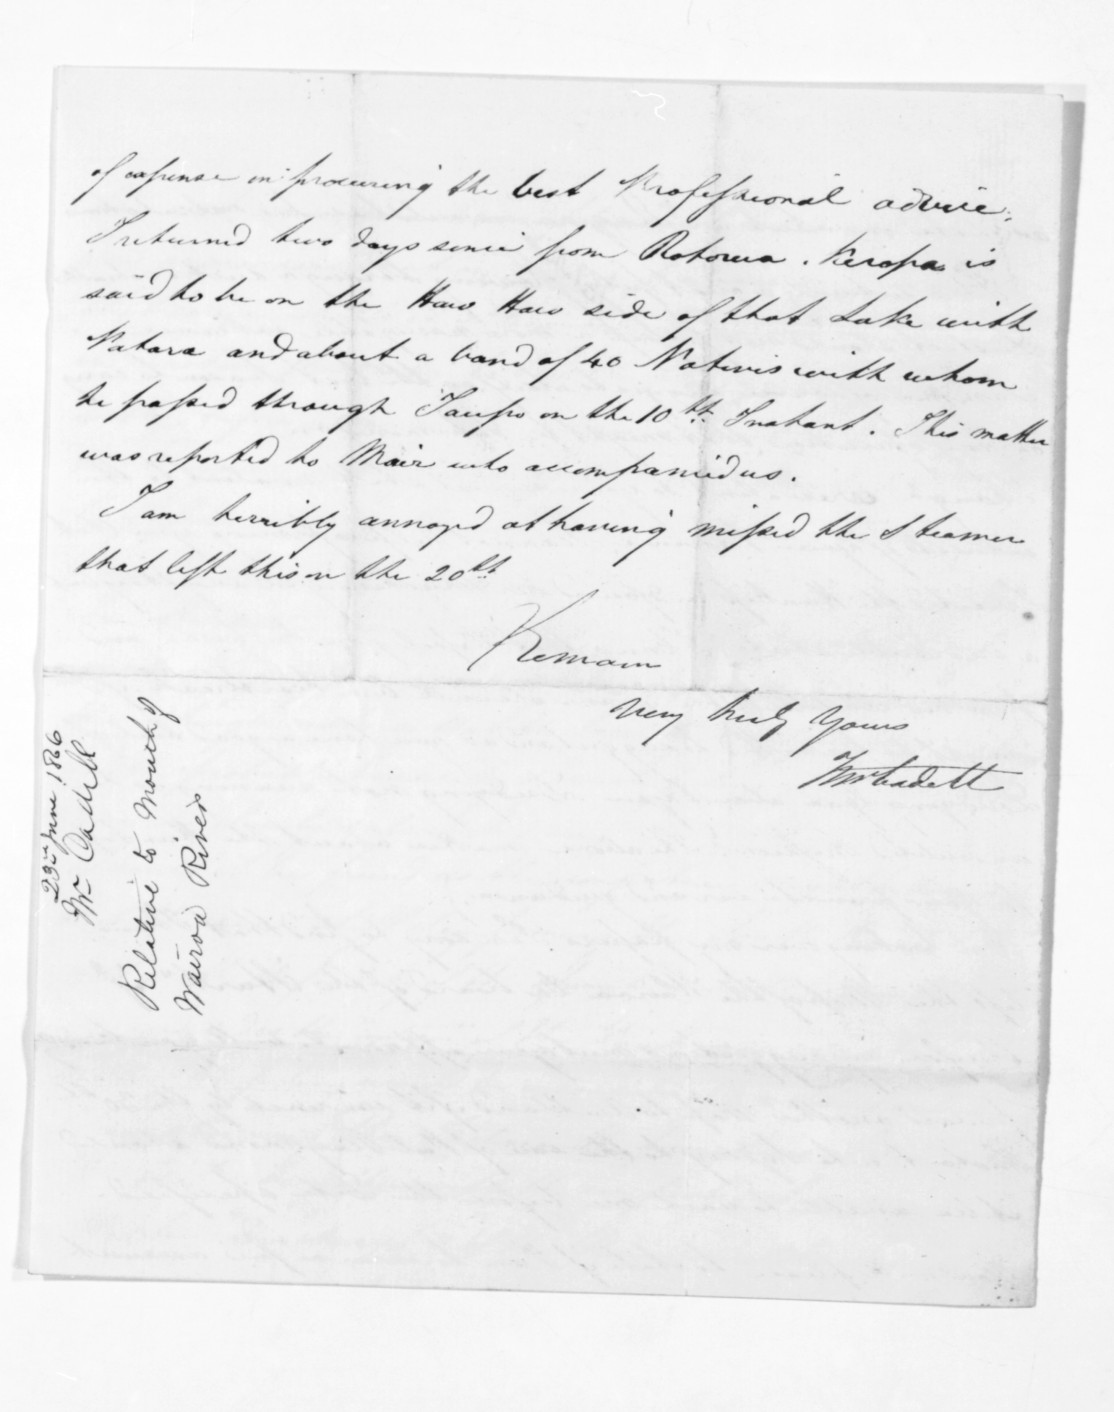 of expense in procuring the best Professional advice.
I returned two days since from Rotorua. Keropa is
said to be on the Haw Haw side of that Lake with
Patara and about a band of 40 Natives with whom
he passed through Taupo on the 10th Instant. This matter
was reported to Mair who accompanied us.
I am terribly annoyed at having missed the Steamer
that left this on the 20th
Remain
Very truly yours
Fr Cadell
23rd June 1866
Mr Cadell
Relative to Mouth of
Wairoa River